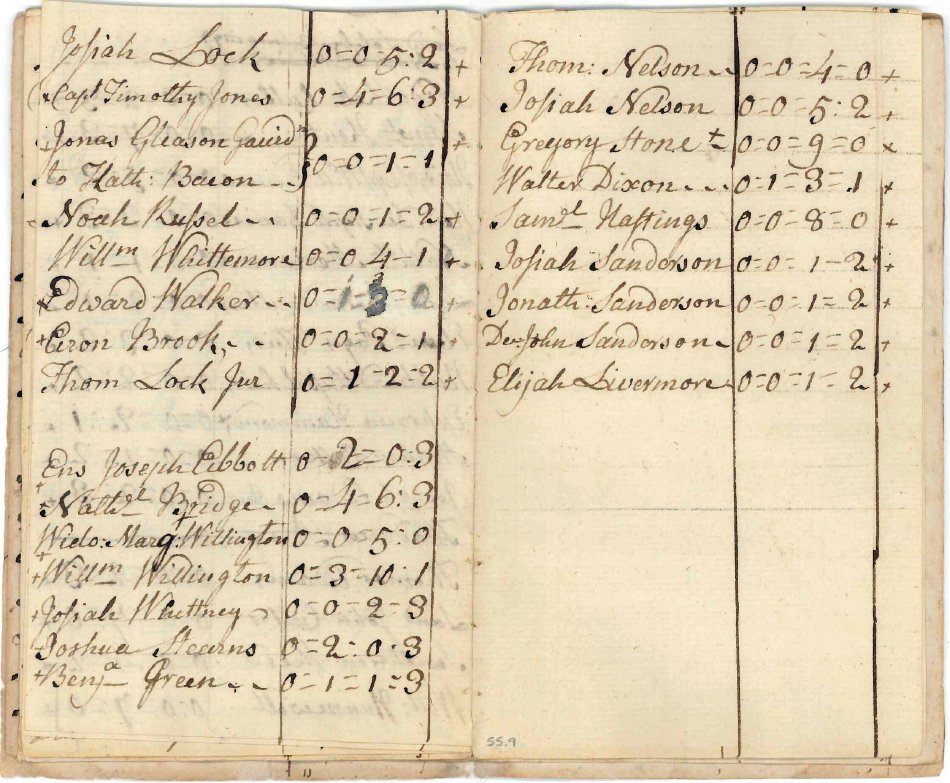 Josiah Lock 0=0=5:2 +
Capt Timothy Jones 0=4=6:3 +
Jonas Gleason Gauerdn
to Hath: Bacon - - 0=0=1=1 +
Noah Russel - - 0=0=1=2 +
Willm Whittemore 0=0 4-1 +
+ Edward Walker - - 0=1=3=0 +
+ Eron Brook, - - 0=0=2=1 +
Thom Lock Jur 0=1=2=2 +
Ens Joseph Ebbott 0 2=0:3
+ Nathll Bridge - 0=4=6:3
Wido: Marg: Willington 0=0 5:0
+ Willm Willington 0=3=10:1
+ Josiah Whittney 0=0=2=3
+ Joshua Stearns 0=2:0:3
+ Benja Green - - 0=1=1=3
Thom: Nelson - - 0=0=4=0 +
Josiah Nelson 0=0=5:2 +
Gregory Stone + - 0=0=9=0 ×
Walter Dixon - - - 0=1=3=1 ×
Samll Hastings 0=0=8=0 +
Josiah Sanderson 0=0=1-2 +
Jonath: Sanderson 0=0=1=2 +
Den: John Sanderson - 0=0=1=2 +
Elijah Livermore - 0=0=1=2 +
SS.9